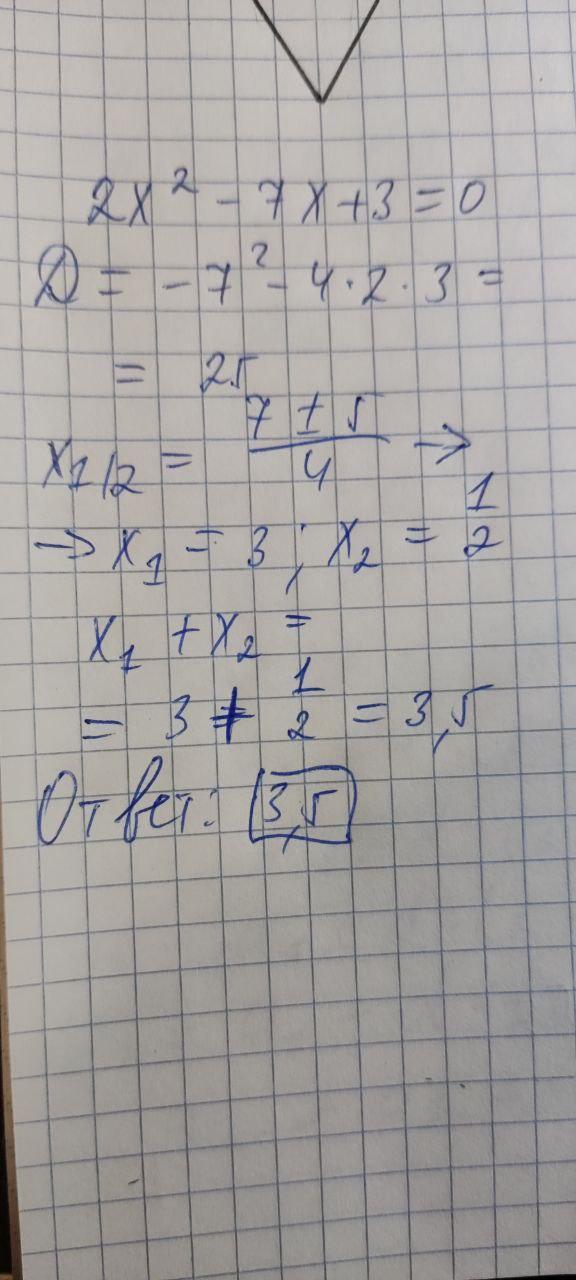 2x² - 7x + 3 = 0
D = -7² - 4·2·3 =
= 25
x₁/₂ = (7 ± 5)/4 →
→ x₁ = 3; x₂ = 1/2
x₁ + x₂ =
= 3 + 1/2 = 3,5
Ответ: 3,5